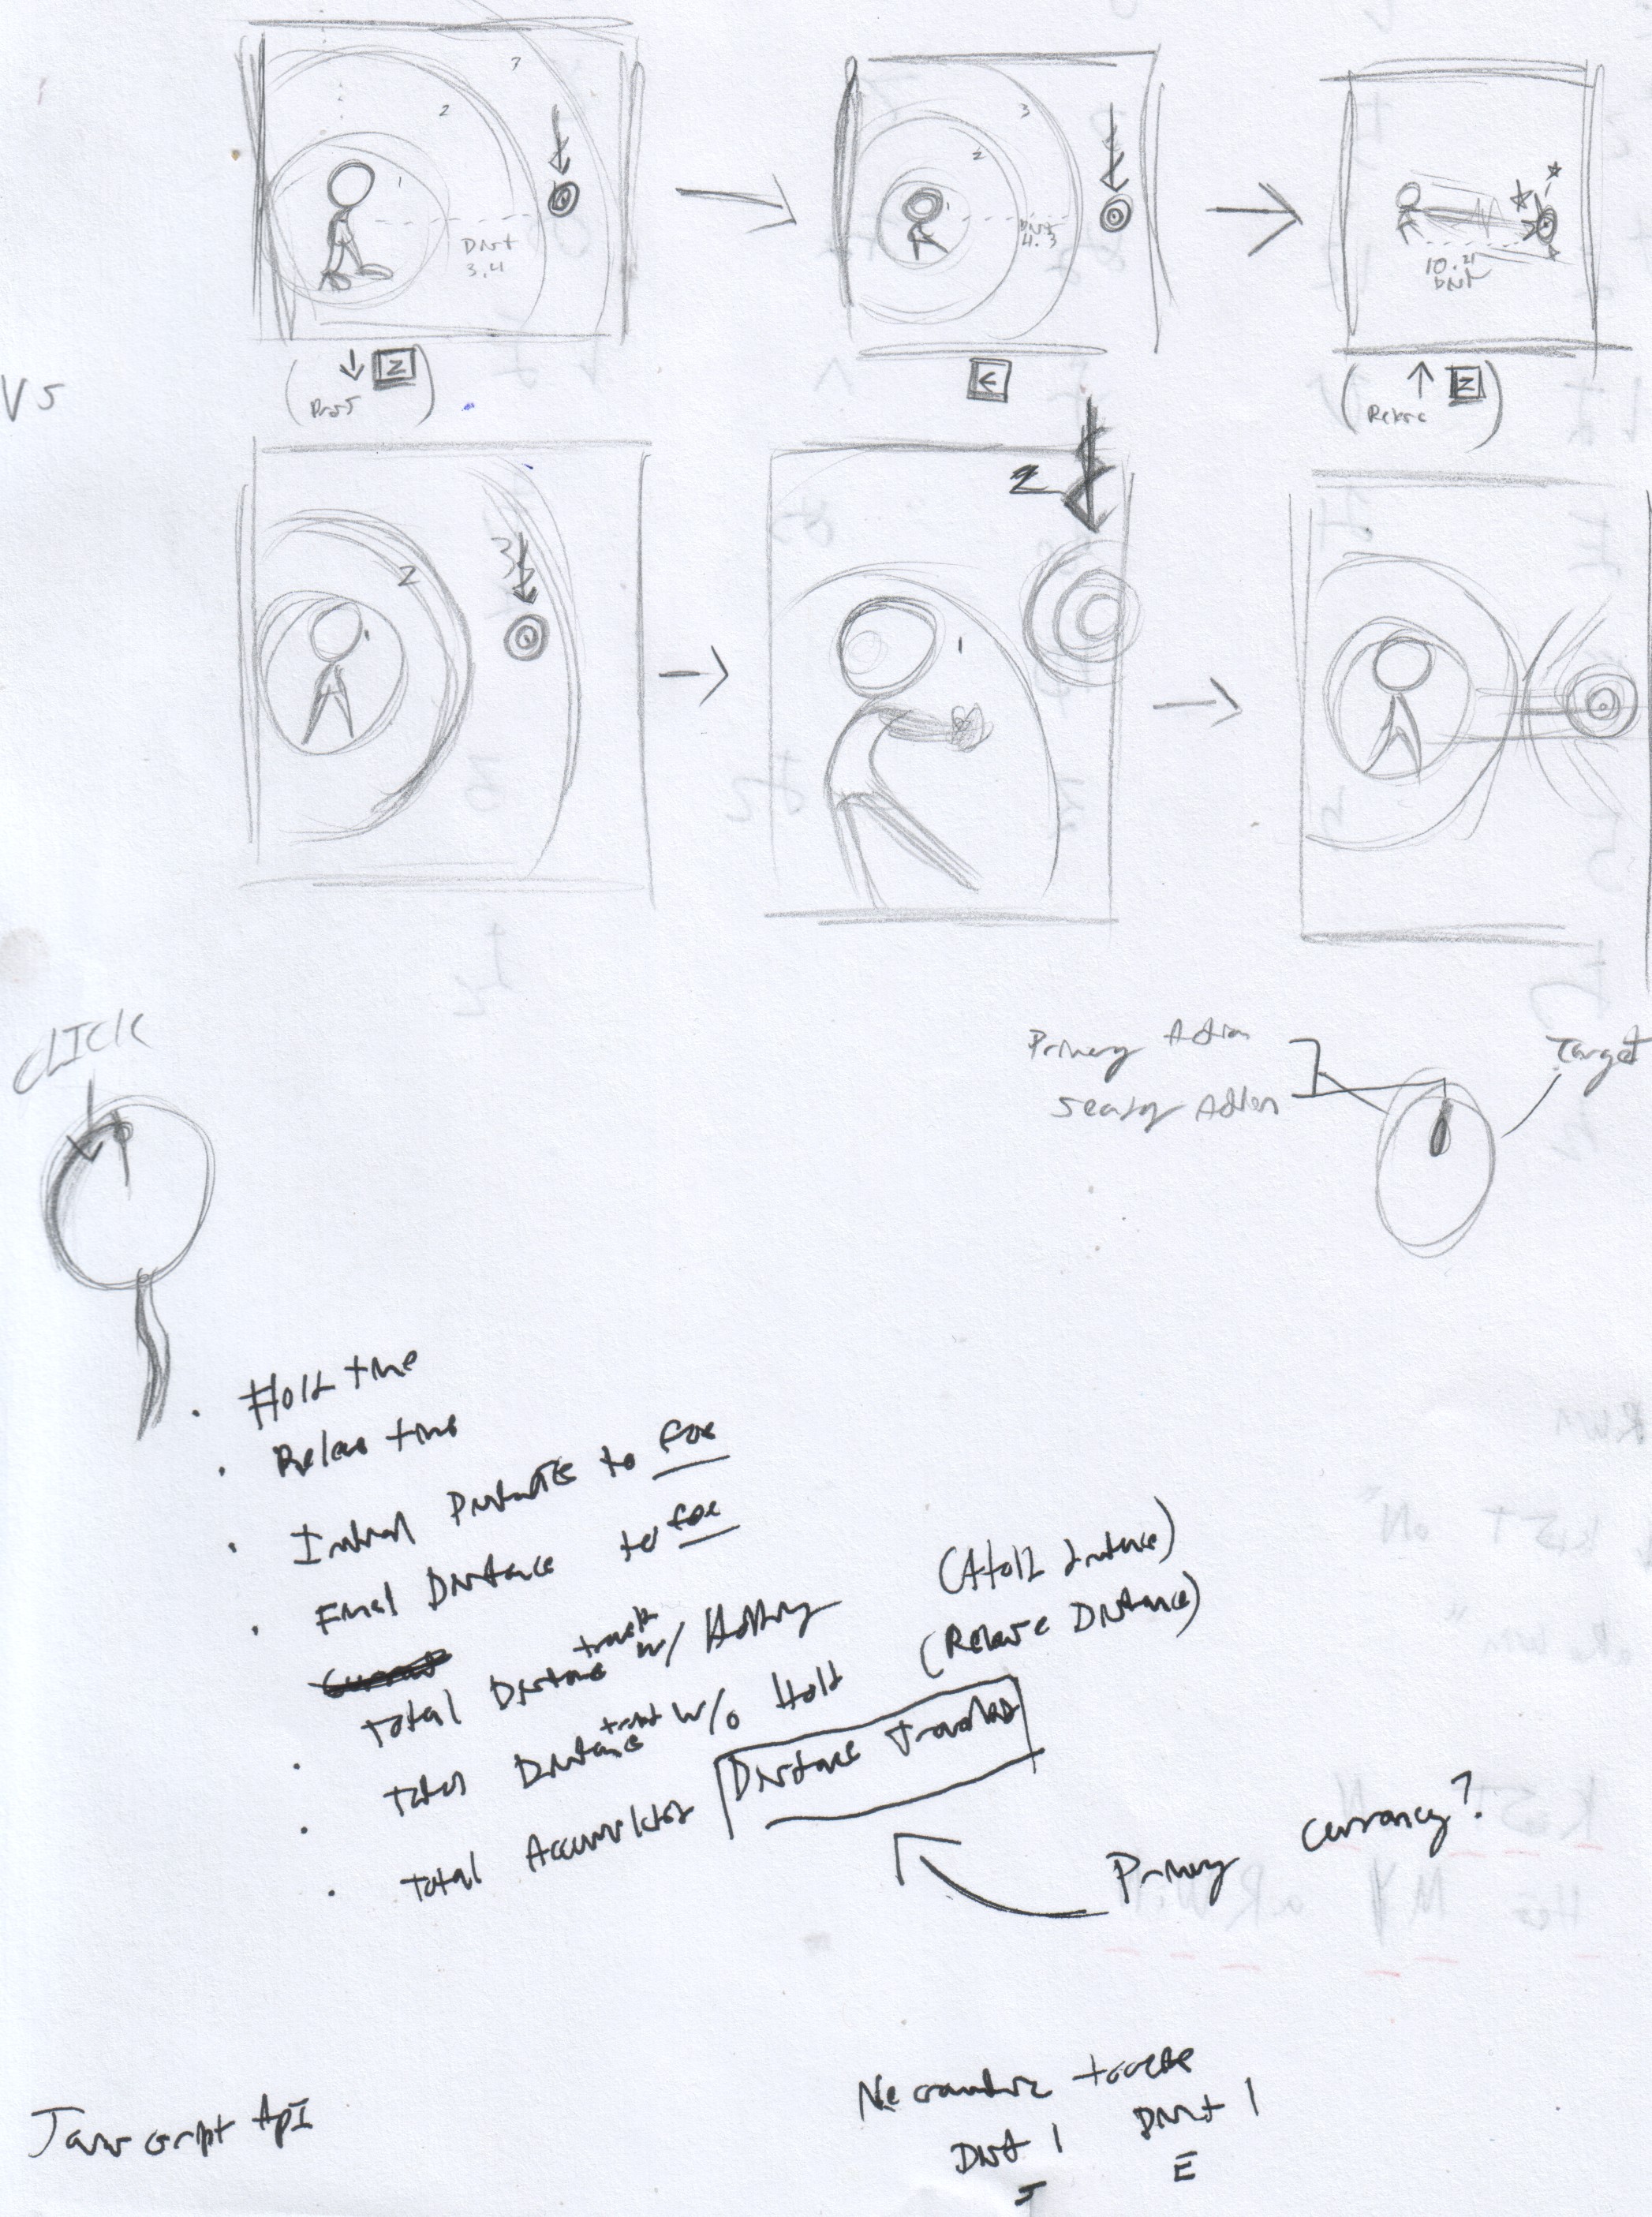 3
2
1
Dist
3.4
3
2
1
Dist
4.3
10.4
Dist
Vs
↓ Z
Press
←
↑ Z
Release
2
3
Z
1
CLICK
Primary Action
Target
• Hold time
• Release time
• Initial Distance to foe
• Final Distance to foe
• Total Distance travel w/ Holding (Hold Distance)
• Total Distance travel w/o Hold (Release Distance)
• Total Accumulated Distance Traveled
Primary Currancy?
Javascript ApI
Dist 1 Dist 1
E